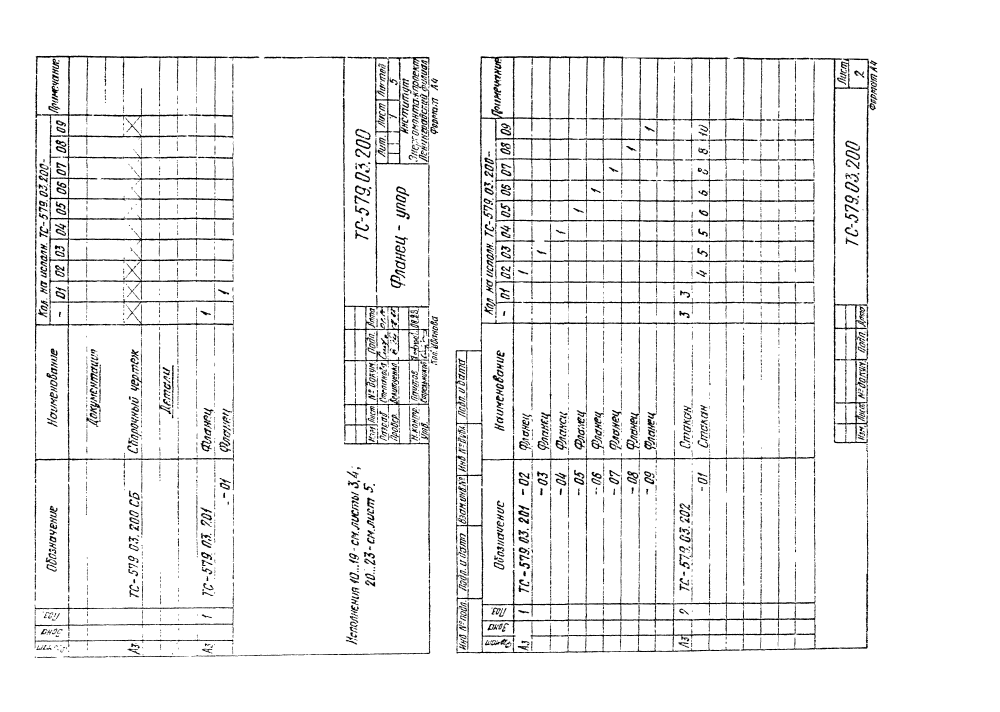 Формат Зона Поз. Обозначение Наименование Кол. на исполн. ТС-579.03.200- Примечание
- 01 02 03 04 05 06 07 08 09
Документация
А3 ТС-579.03.200 СБ Сборочный чертеж
Детали
А3 1 ТС-579.03.201 Фланец 1
-01 Фланец 1
Исполнения 10...19 - см. листы 3,4;
20...23 - см. лист 5.
ТС-579.03.200
Изм. Лист № докум. Подп. Дата
Разраб. Степанова
Провер.
Н.контр.
Утв.
Фланец - упор
Лит. Лист Листов
1 5
Институт
Энергомонтажпроект
Ленинградский филиал
Формат А4
Инв. № подл. Подп. и дата Взам. инв. № Инв. № дубл. Подп. и дата
Формат Зона Поз. Обозначение Наименование Кол. на исполн. ТС-579.03.200- Примечание
- 01 02 03 04 05 06 07 08 09
А3 1 ТС-579.03.201 -02 Фланец 1
-03 Фланец 1
-04 Фланец 1
-05 Фланец 1
-06 Фланец 1
-07 Фланец 1
-08 Фланец 1
-09 Фланец 1
А3 2 ТС-579.03.202 Стакан 3 3
-01 Стакан 4 5 5 6 6 8 8 10
Изм. Лист № докум. Подп. Дата
ТС-579.03.200
Лист
2
Формат А4